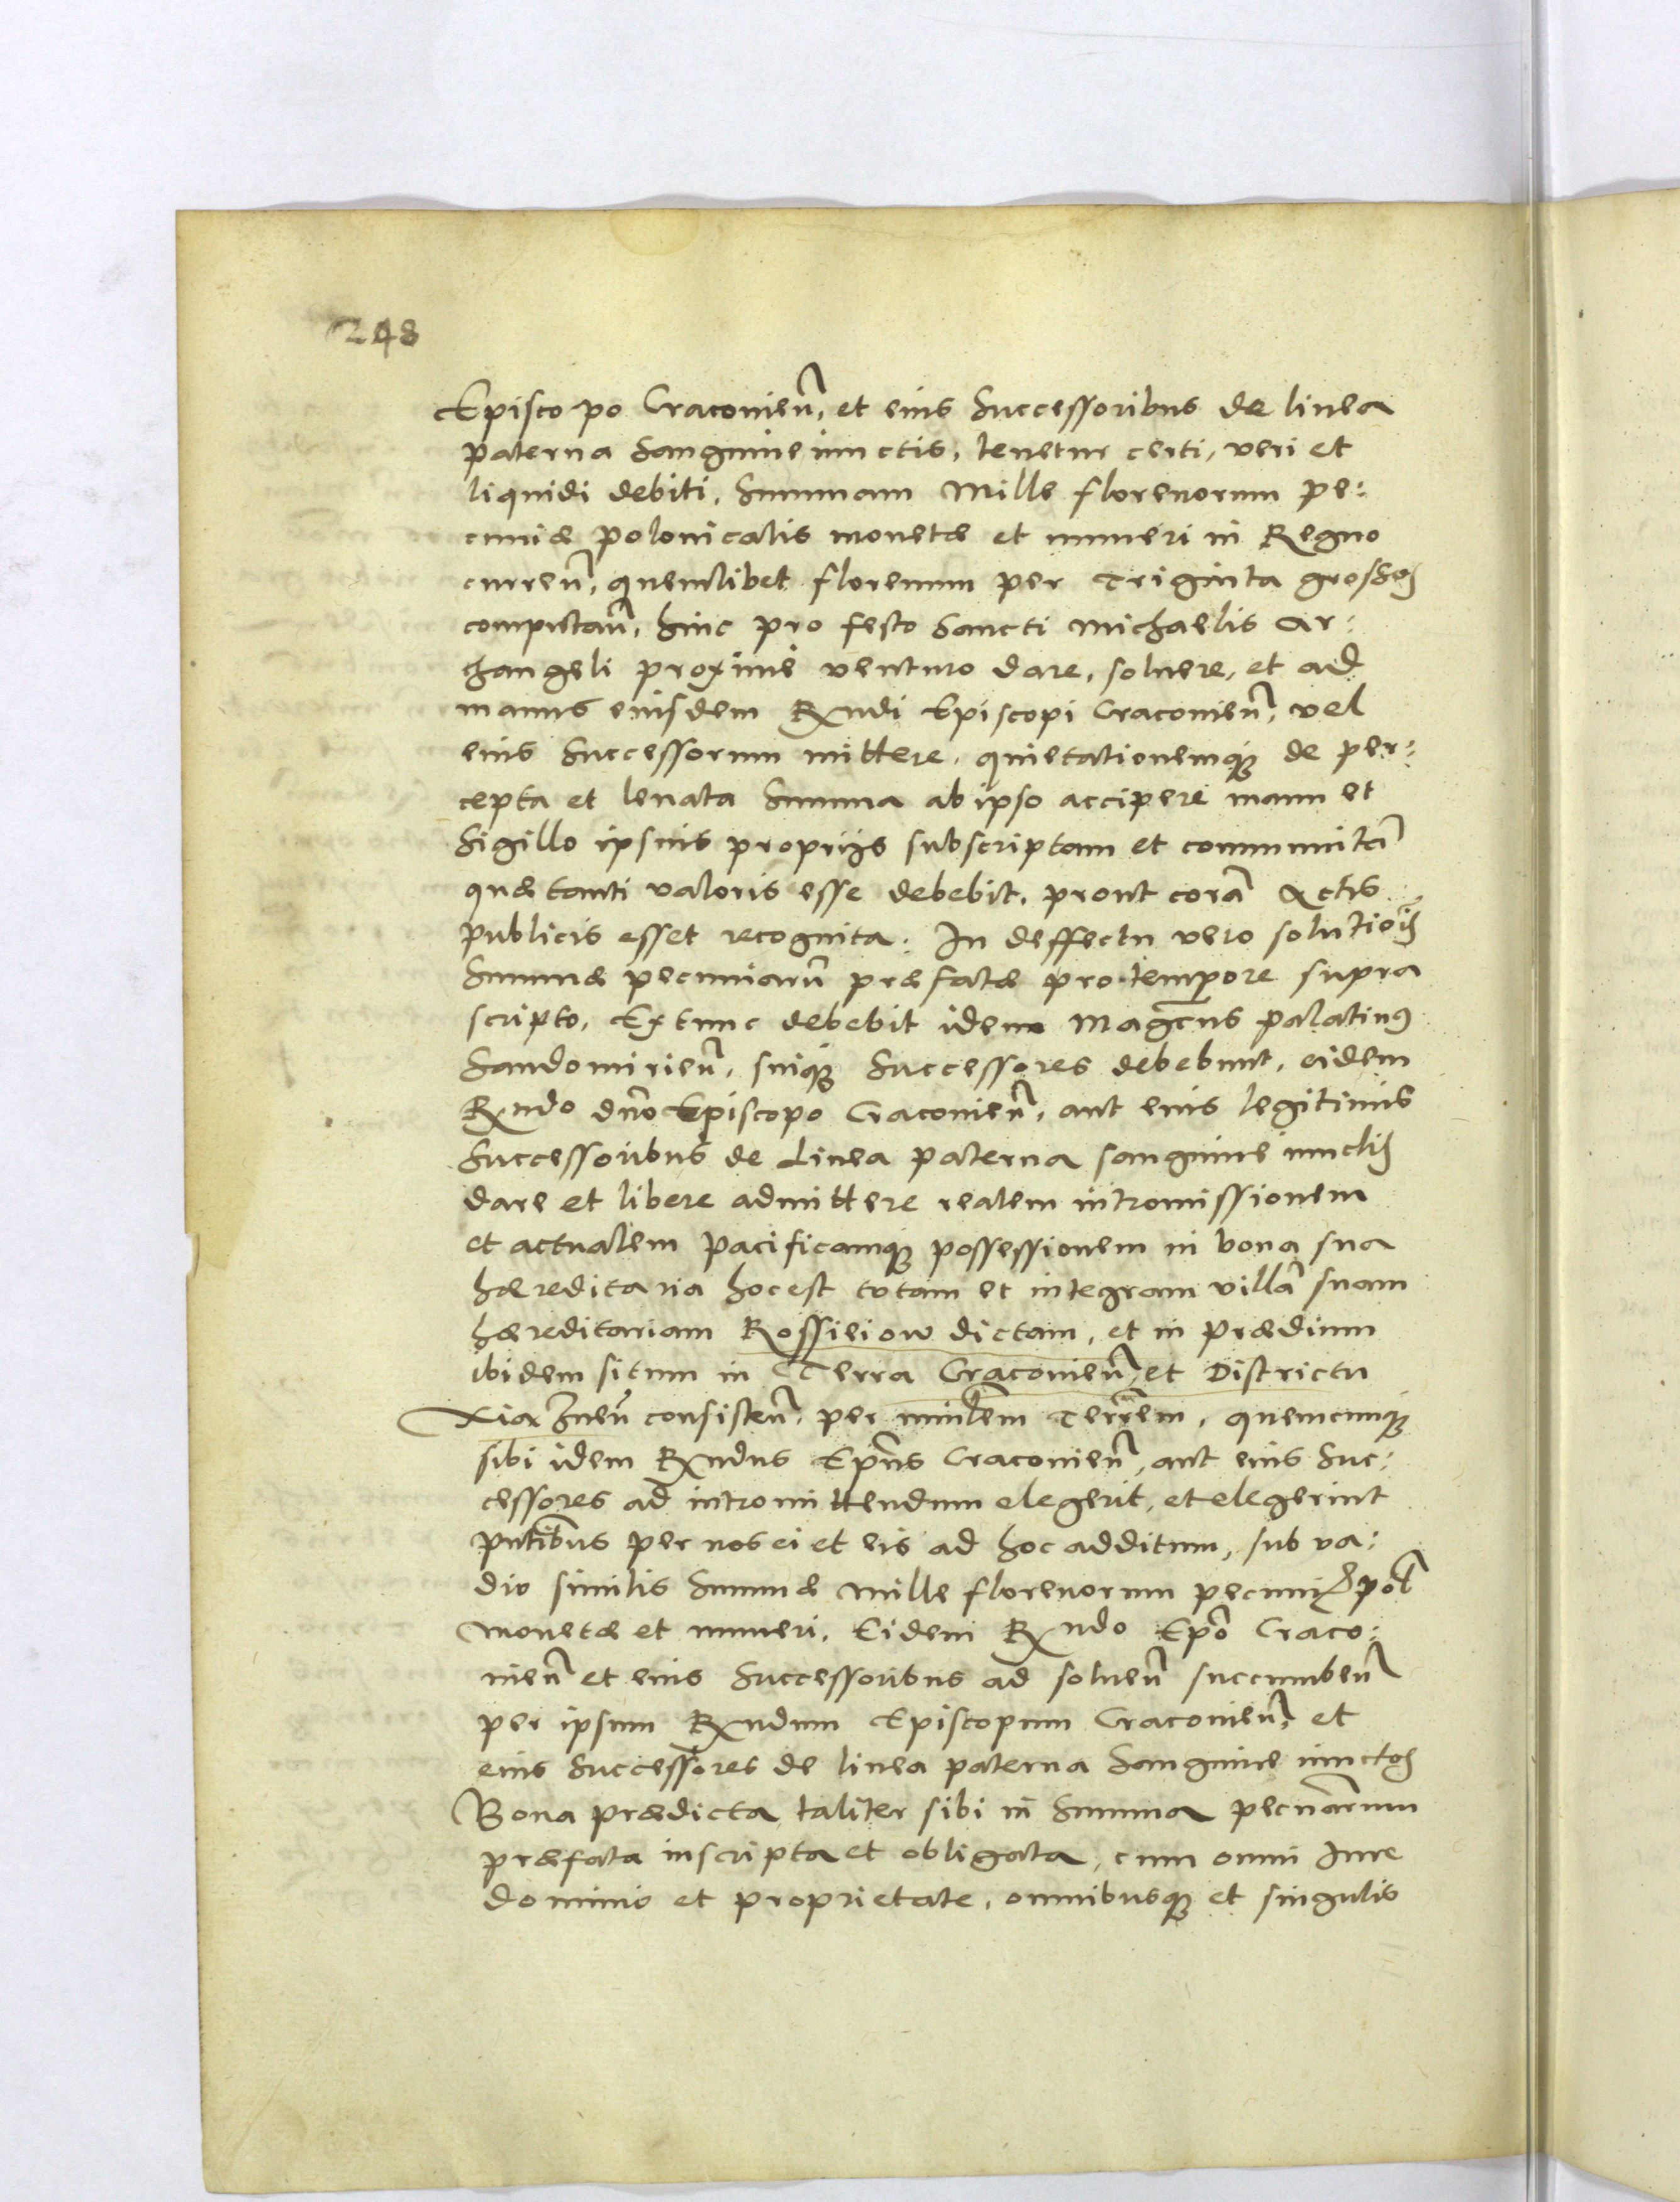 248
Episcopo Cracovien̄, et eius Successoribus de linea
paterna Sanguine iunctis, tenetur certi, veri et
liquidi debiti, Summam Mille florenorum pe:
cuniæ polonicalis monetæ et numeri in Regno
curren̄, quemlibet florenum per Triginta grossos
computan̄, hinc pro festo Sancti Michaelis Ar:
changeli proxime venturo dare, soluere, et ad
manus eiusdem Rndi Episcopi Cracovien̄, vel
eius Successorum mittere, quietationemq₃ de per:
cepta et leuata Summa ab ipso accipere manu et
Sigillo ipsius proprijs subscriptam et communitā
quæ tanti valoris esse debebit, prout corā Actis
publicis esset recognita: In deffectu vero solutiōis
Summæ pecuniarū præfatæ pro tempore supra
scripto, Extunc debebit idem Mag̅cus palatinus
Sandomirien̄, suiq₃ Successores debebunt, eidem
Rndo dn̄o Episcopo Cracovien̄, aut eius legitimis
Successoribus de Linea paterna sanguine iunctis
dare et libere admittere realem intromissionem
et actualem pacificamq₃ possessionem in bona sua
hæreditaria hoc est totam et integram villā suam
hæreditariam Rossieiow dictam, et in prædium
ibidem situm in Terra Cracovien̄, et Districtu
Xiaznen̄ consisten̄, per minlem Terrēm, quemcunq₃
sibi idem Rndus Ep̄us Cracovien̄, aut eius Suc:
cessores ad intromittendum elegerit, et elegerint
pn̄tibus per nos ei et eis ad hoc additum, sub va:
dio similis Summæ Mille florenorum pecuniæ pol̄
Monetæ et numeri, Eidem Rndo Ep̄o Craco:
vien̄ et eius Successoribus ad soluen̄ succumben̄
per ipsum Rndum Episcopum Cracovien̄, et
eius Successores de linea paterna Sanguine iunctos
Bona prædicta taliter sibi in Summa pecūiarum
præfata inscripta et obligata, cum omni Iure
dominio et proprietate, omnibusq₃ et singulis